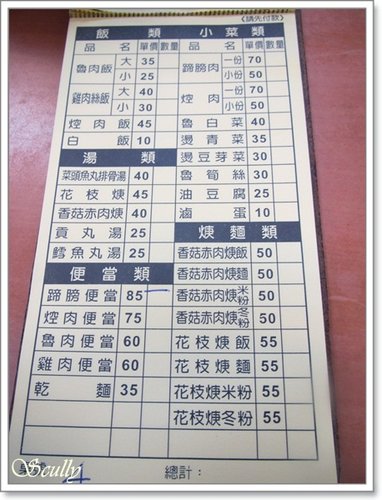 (請先付款)
飯類 小菜類
品名 單價 數量 品名 單價 數量
魯肉飯 大 35 蹄膀肉 一份 70
小 25 小份 50
雞肉絲飯 大 40 焢肉 一份 70
小 30 小份 50
焢肉飯 45 魯白菜 40
白飯 10 燙青菜 35
湯類 燙豆芽菜 30
菜頭魚丸排骨湯 40 魯筍絲 30
花枝焿 45 油豆腐 25
香菇赤肉焿 40 滷蛋 10
貢丸湯 25 焿麵類
鱈魚丸湯 25 香菇赤肉焿飯 50
便當類 香菇赤肉焿麵 50
蹄膀便當 85 香菇赤肉焿米粉 50
焢肉便當 75 香菇赤肉焿冬粉 50
魯肉便當 60 花枝焿飯 55
雞肉便當 60 花枝焿麵 55
乾麵 35 花枝焿米粉 55
花枝焿冬粉 55
總計：
Scully